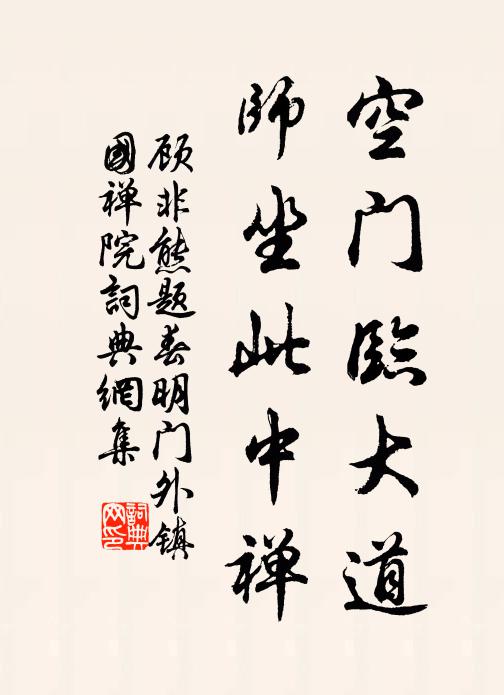 空门臨大道
师坐此中禅
顾非熊题春明门外镇
國禅院詞典網集
詞典网印